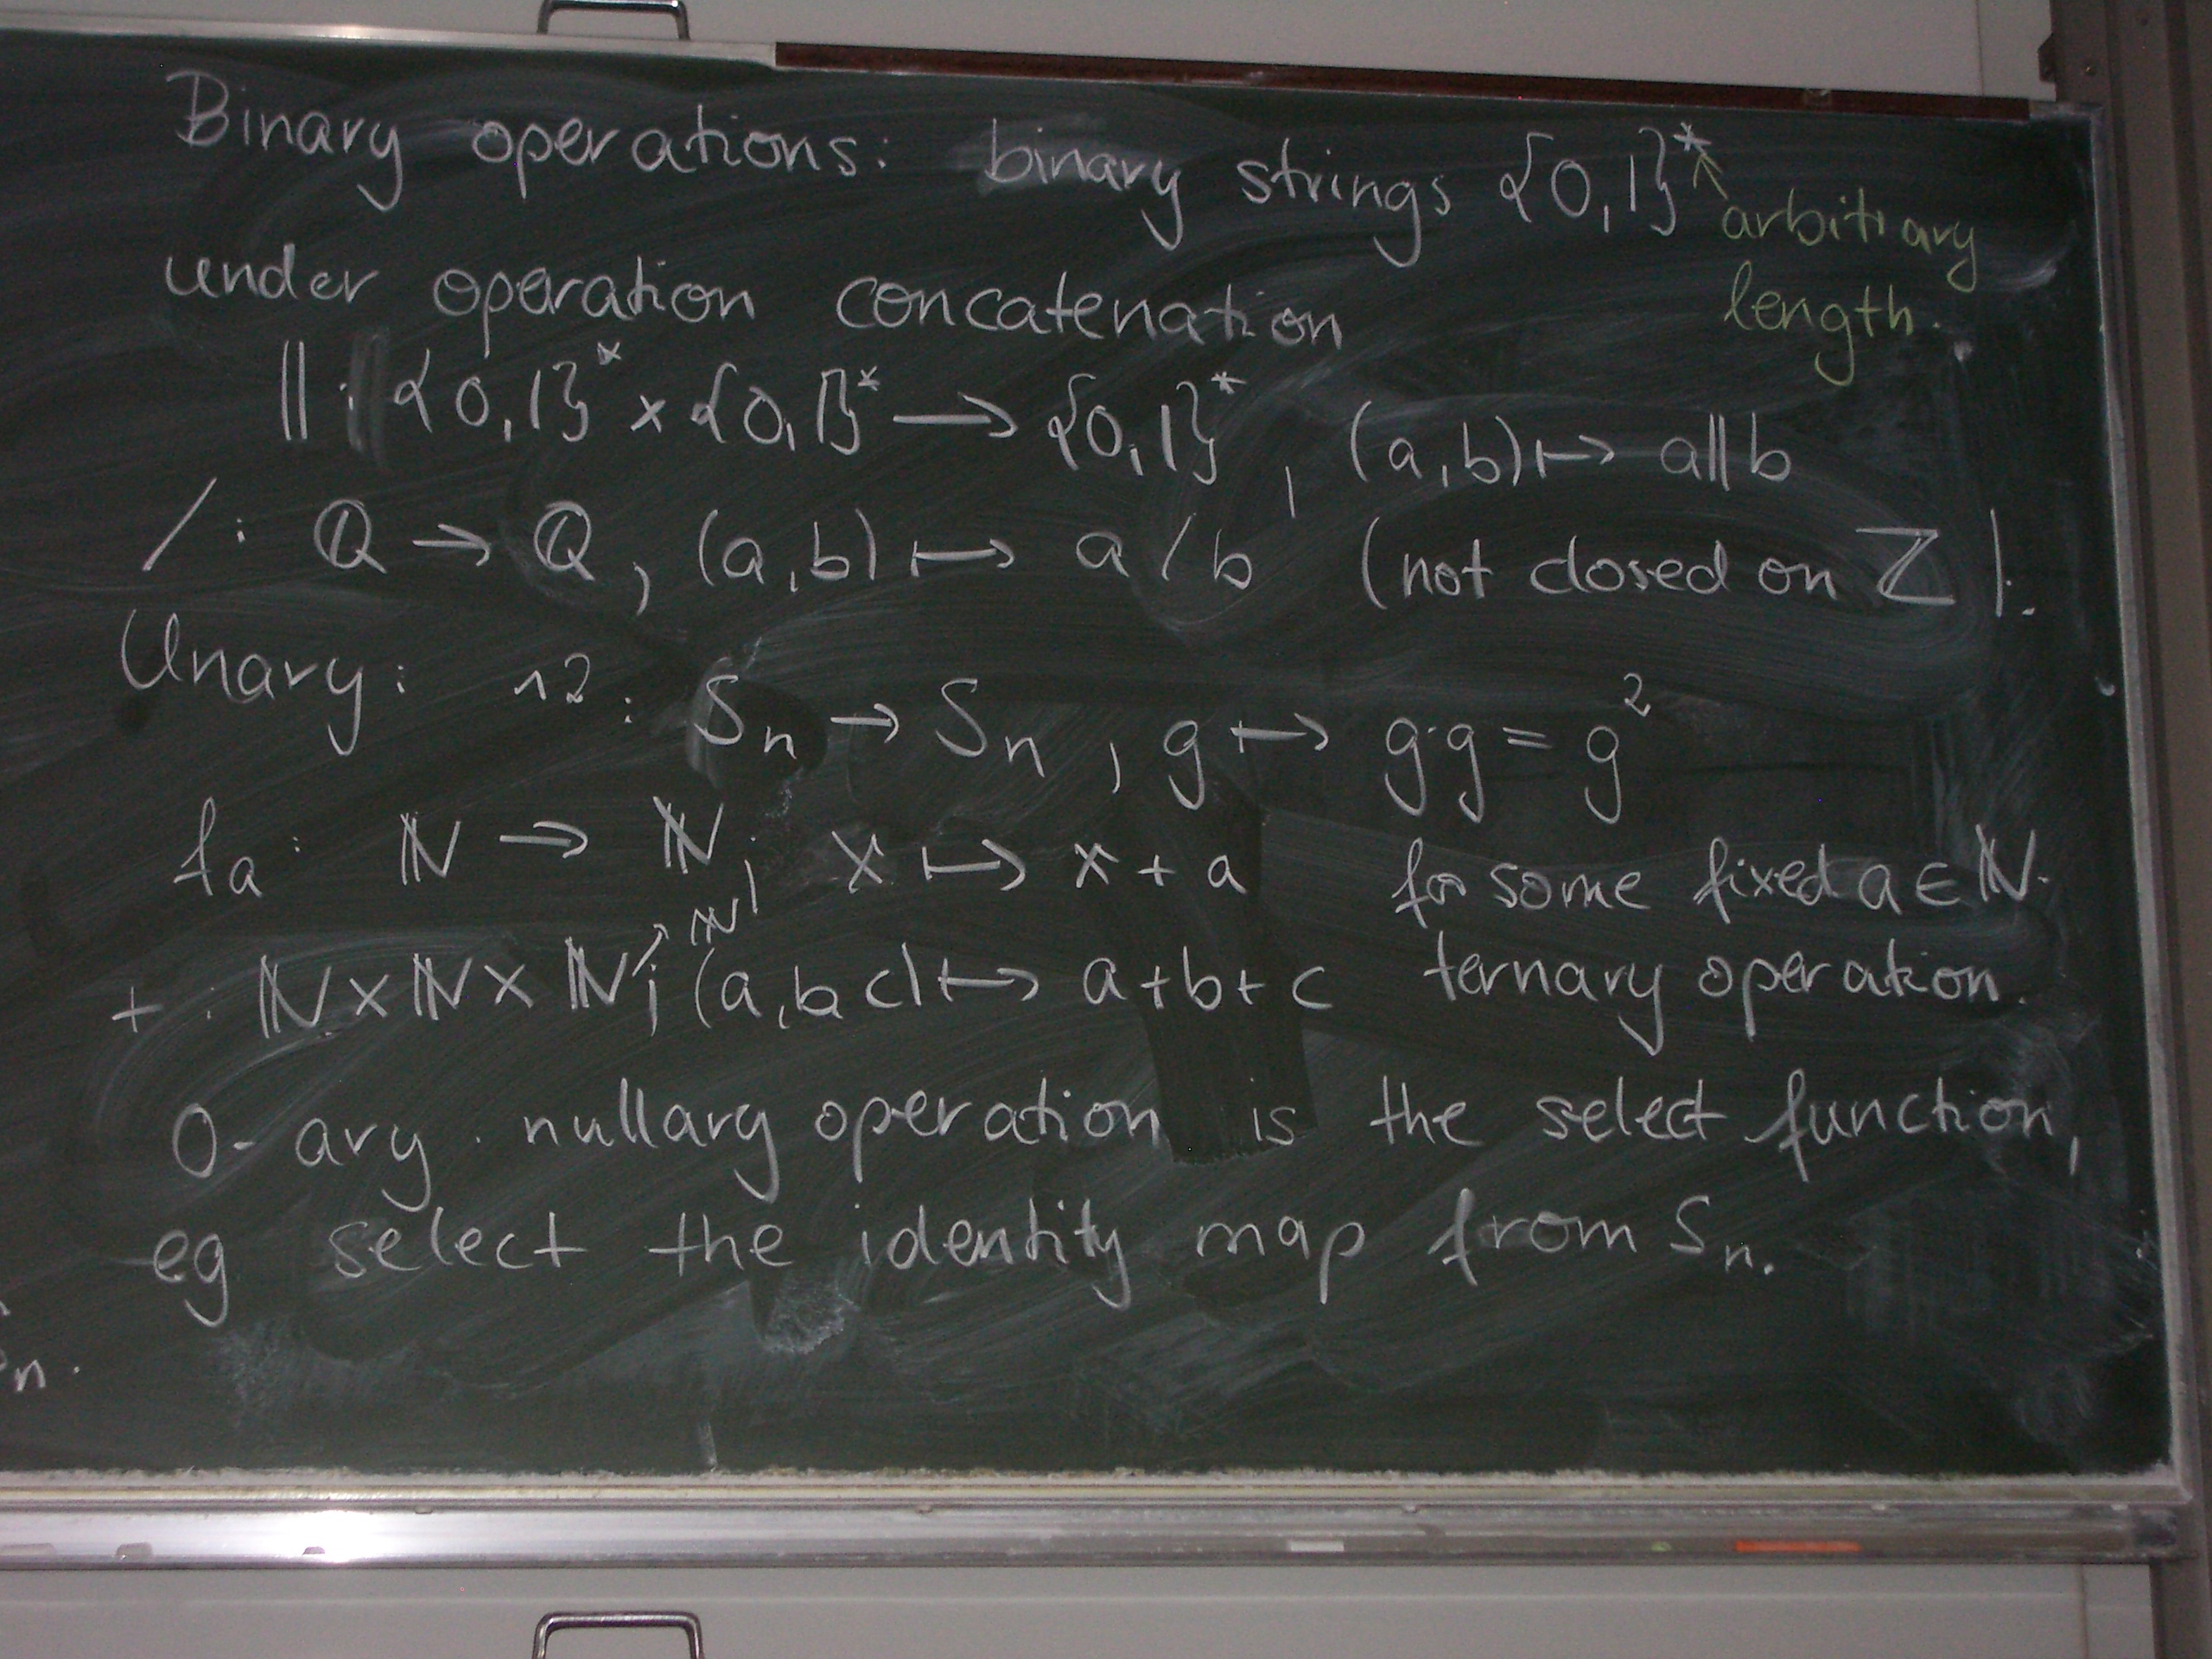 Binary operations: binary strings {0,1}*
arbitrary
length.
under operation concatenation
|| : {0,1}* × {0,1}* → {0,1}* , (a,b) ↦ a||b
/ : Q → Q , (a,b) ↦ a / b (not closed on Z).
Unary: ^2 : Sn → Sn , g ↦ g·g = g²
fa : ℕ → ℕ, x ↦ x + a for some fixed a ∈ ℕ.
+ : ℕ × ℕ × ℕ → ℕ, (a,b c) ↦ a+b+c ternary operation.
0-ary. nullary operation is the select function,
eg select the identity map from Sn.
n.